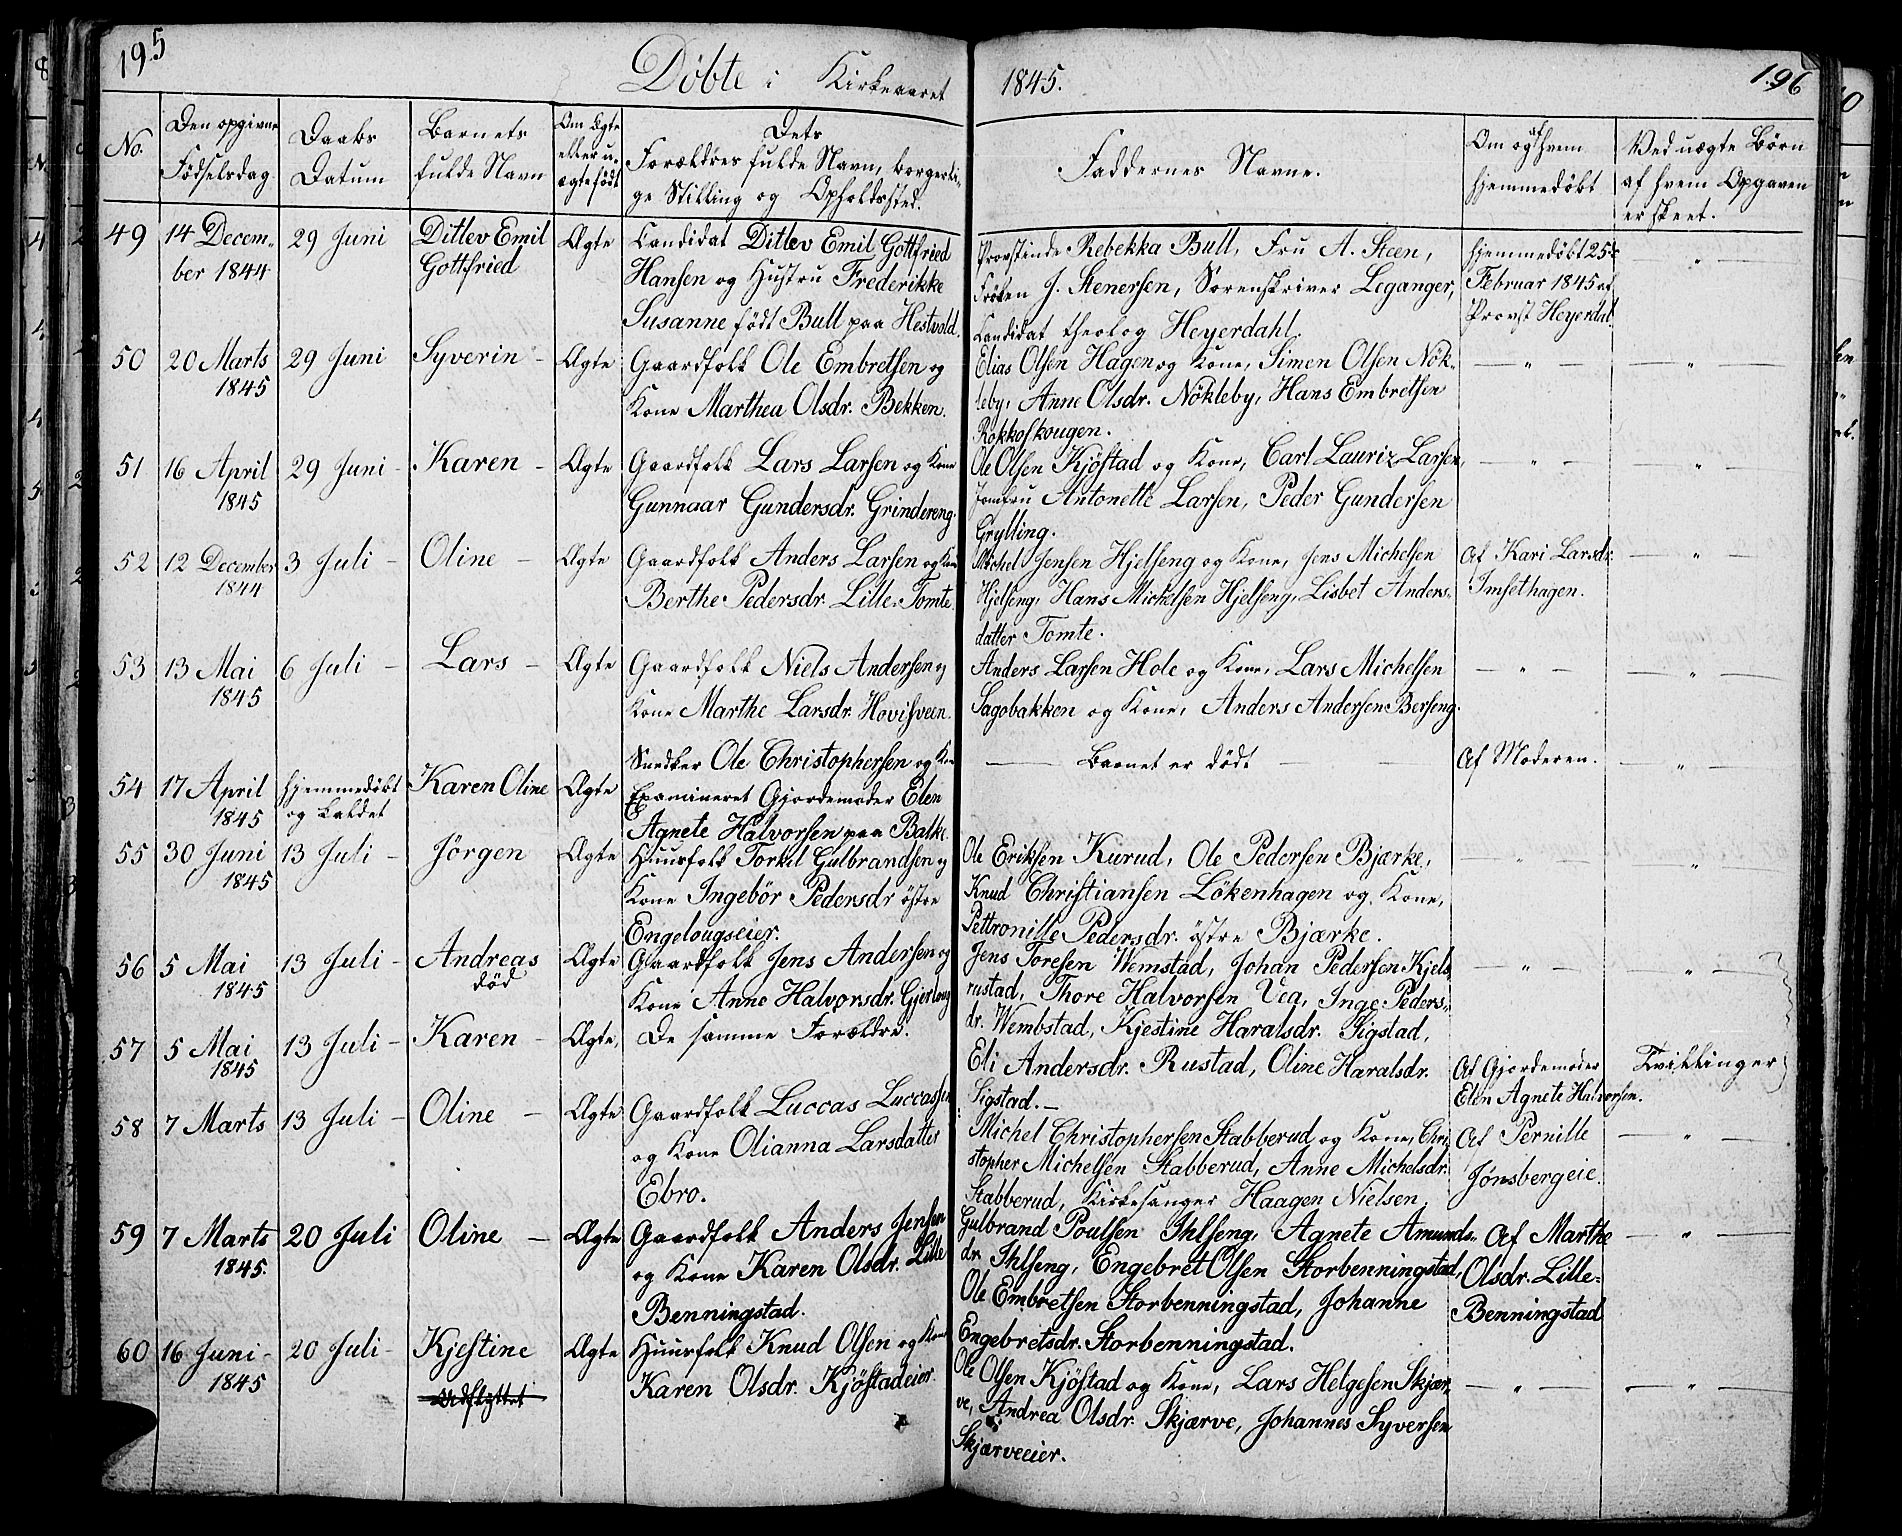 195
Döbte i Kirkeaaret 1845.
196
No.
Den opgivne Födselsdag
Daabs Datum
Barnets fulde Navn
Om Ægte eller uægtefödt
Dets Forældres fulde Navn, borgerlige Stilling og Opholdssted.
Faddernes Navne.
Om og af hvem hjemmedöbt
Ved uægte Börn af hvem Opgaven er skeet.
49 14 Decem- 29 Juni Ditlev Emil Ægte Candidat Ditlev Emil Gottfried
ber 1844 Gottfried Hansen og Hustru Frederikke
Susanne födt Bull paa Hestvold.
Provstinde Rebekka Bull, Fru A. Steen, hjemmedöbt 25de
Fröken J. Stenersen, Sorenskriver Leganger, Februar 1845 af
Candidat theolog Heyerdahl. Provst Heyerdal. "
50 20 Marts 29 Juni Syverin - Ægte Gaardfolk Ole Embretsen og
1845 Kone Marthea Olsdr. Bekken.
Elias Olsen Hagen og Kone, Simen Olsen Nök- — " — — " —
leby, Anne Olsdr. Nökleby, Hans Embretsen
Rokkoskougen.
51 16 April 29 Juni - Karen - Ægte Gaardfolk Lars Larsen og Kone
1845 Gunnaar Gundersdr. Grindereng.
Ole Olsen Kjöstad og Kone, Carl Lauriz Larsen, — " — — " —
Jomfru Antonette Larsen, Peder Gundersen
Grylling.
52 12 December 3 Juli - Oline - Ægte Gaardfolk Anders Larsen og Kone
1844 Berthe Pedersdr. Lille-Tomte.
Michel Jensen Hjelseng og Kone, Jens Michelsen Af Kari Larsdr. — " —
Hjelseng, Hans Michelsen Hjelseng, Lisbet Anders- Imsethagen.
datter Tomte.
53 13 Mai 6 Juli - Lars - Ægte Gaardfolk Niels Andersen og
1845 Kone Marthe Larsdr. Hovisveen.
Anders Larsen Hole og Kone, Lars Michelsen — " — — " —
Sagobakken og Kone, Anders Andersen Berseng.
54 17 April hjemmedöbt Karen Oline Ægte Snedker Ole Christophersen og Kone
1845 og kaldet Examineret Gjordemoder Elen
Agnete Halvorsen paa Balke.
— Barnet er dödt — Af Moderen. — " —
55 30 Juni 13 Juli - Jörgen Ægte Huusfolk Torkil Gulbrandsen og
1845 Kone Ingebör Pedersdr östre
Engelougseier.
Ole Eriksen Kurud, Ole Pedersen Bjærke, — " — "
Knud Christiansen Lökenhagen og Kone,
Pettronille Pedersdr. östre Bjærke.
56 5 Mai 13 Juli - Andreas Ægte Gaardfolk Jens Andersen og
1845 död Kone Anne Halvorsdr. Gjerloug
Jens Toresen Wemstad, Johan Pedersen Kjels- — " — — " —
rustad, Thore Halvorsen Vea, Inge Peders-
dr. Wembstad, Kjestine Haralsdr. Sigstad,
57 5 Mai 13 Juli - Karen - Ægte, De samme Forældre.
1845
Eli Andersdr. Rustad, Oline Haralsdr. Af Gjordemoder Tvillinger
Sigstad. — Elen Agnete Halvorsen.
58 7 Marts 13 Juli - Oline - Ægte Gaardfolk Luccas Luccassen
og Kone Olianna Larsdatter
Ebro.
Michel Christophersen Stabberud og Kone, Chri- Af Pernille — " —
stopher Michelsen Stabberud, Anne Michelsdr. Jönsbergeie.
Stabberud, Kirkesanger Haagen Nielsen.
59 7 Marts 20 Juli Oline - Ægte Gaardfolk Anders Jensen
1845. og Kone Karen Olsdr. Lille
Benningstad.
Gulbrand Poulsen Ihlseng, Agnete Amunds- Af Marthe — " —
dr. Ihlseng, Engebret Olsen Storbenningstad, Olsdr. Lille-
Ole Embretsen Storbenningstad, Johanne Benningstad
Engebretsdr. Storbenningstad.
60 16 Juni - 20 Juli - Kjestine Ægte Huusfolk Knud Olsen og Kone
1845 Udflyttet Karen Olsdr. Kjöstadeier.
Ole Olsen Kjöstad og Kone, Lars Helgesen Skjær- — " — — " —
ve, Andrea Olsdr. Skjærve, Johannes Syversen
Skjærveeier.